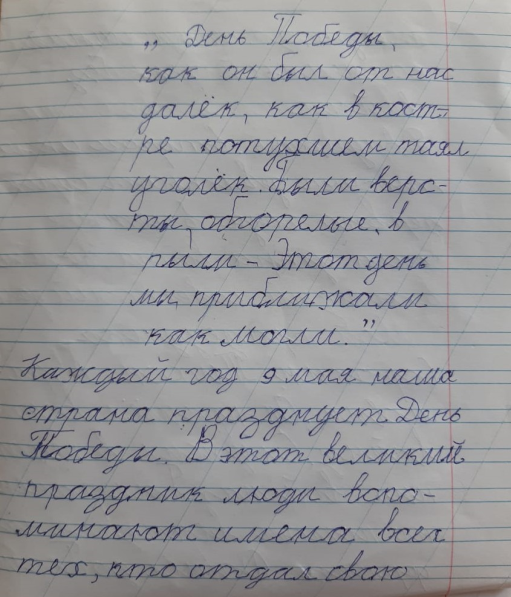 „ День Победы,
как он был от нас
далёк, как в кост-
ре потухшем таял
уголёк. Были верс-
ты, обгорелые, в
пыли - Этот день
мы приближали
как могли.”
Каждый год 9 мая наша
страна празднует День
Победы. В этот великий
праздник люди вспо-
минают имена всех
тех, кто отдал свою